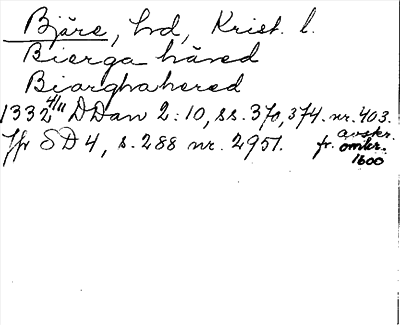 Bjäre, hd, Krist. l.
Bierga häred
Biarghahered
1332 4/11 DDan 2:10, ss. 370, 374. nr. 403.
avskr.
Jfr SD 4, s. 288 nr. 2951. fr. omkr.
1600